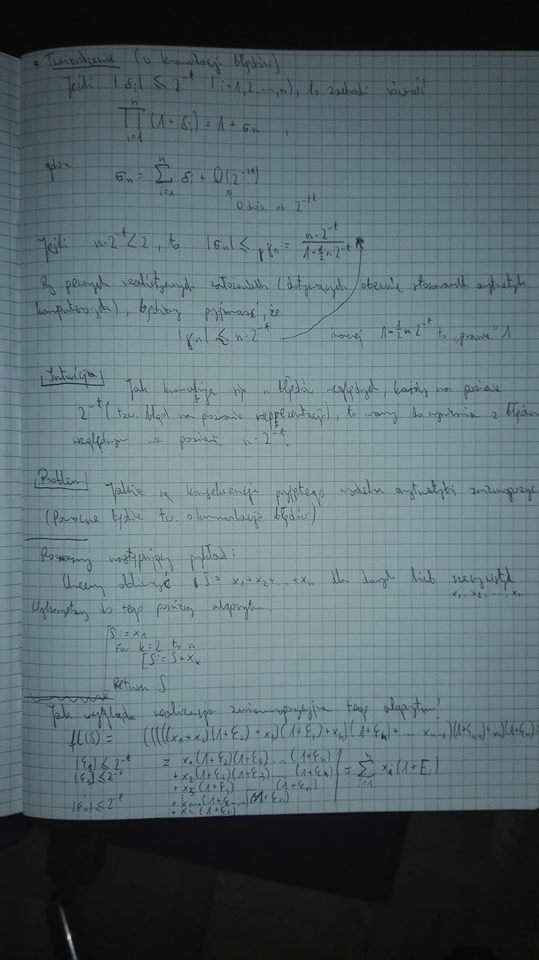 • Twierdzenie (o kumulacji błędów)
Jeśli |δi| ≤ 2^-t (i=1,2,...,n), to zachodzi równość
∏_{i=1}^{n} (1+δi) = 1+σn ,
gdzie σn = ∑_{i=1}^{n} δi + O(2^-2t)
O duże od 2^-2t
Jeśli n·2^-t < 2, to |σn| ≤ γn := n·2^-t / (1-½n2^-t)
Przy pewnych realistycznych założeniach (dotyczących obecnie stosowanych arytmetyk
komputerowych), będziemy przyjmować, że
|γn| ≲ n·2^-t inaczej 1-½n2^-t to "prawie" 1
Intuicja Jak kumuluje się n błędów względnych, każdy na poziomie
2^-t (tzw. błąd na poziomie reprezentacji), to mamy do czynienia z błędem
względnym na poziomie n·2^-t.
Problem Jakie są konsekwencje przyjętego modelu arytmetyki zmiennopozycyjnej
(Pomocne będzie tw. o kumulacji błędów)
Rozważmy następujący przykład:
Chcemy obliczyć S := x1+x2+...+xn dla danych liczb rzeczywistych
x1, x2, ..., xn
Wykorzystamy do tego poniższy algorytm.
S := x1
For k=2 to n
[S := S+xk
Return S
Jak wygląda realizacja zmiennopozycyjna tego algorytmu?
fl(S) = (((((x1+x2)(1+ε2)+x3)(1+ε3)+x4)(1+ε4)+... xn-1)(1+εn-1)+xn)(1+εn) =
|ε2| ≤ 2^-t = x1(1+ε2)(1+ε3)...(1+εn)
|ε3| ≤ 2^-t + x2(1+ε2)(1+ε3)...(1+εn) = ∑_{i=1}^{n} xi(1+Ei)
+ x3(1+ε3) ... (1+εn)
|εn| ≤ 2^-t + xn-1(1+εn-1)(1+εn)
+ xn(1+εn)